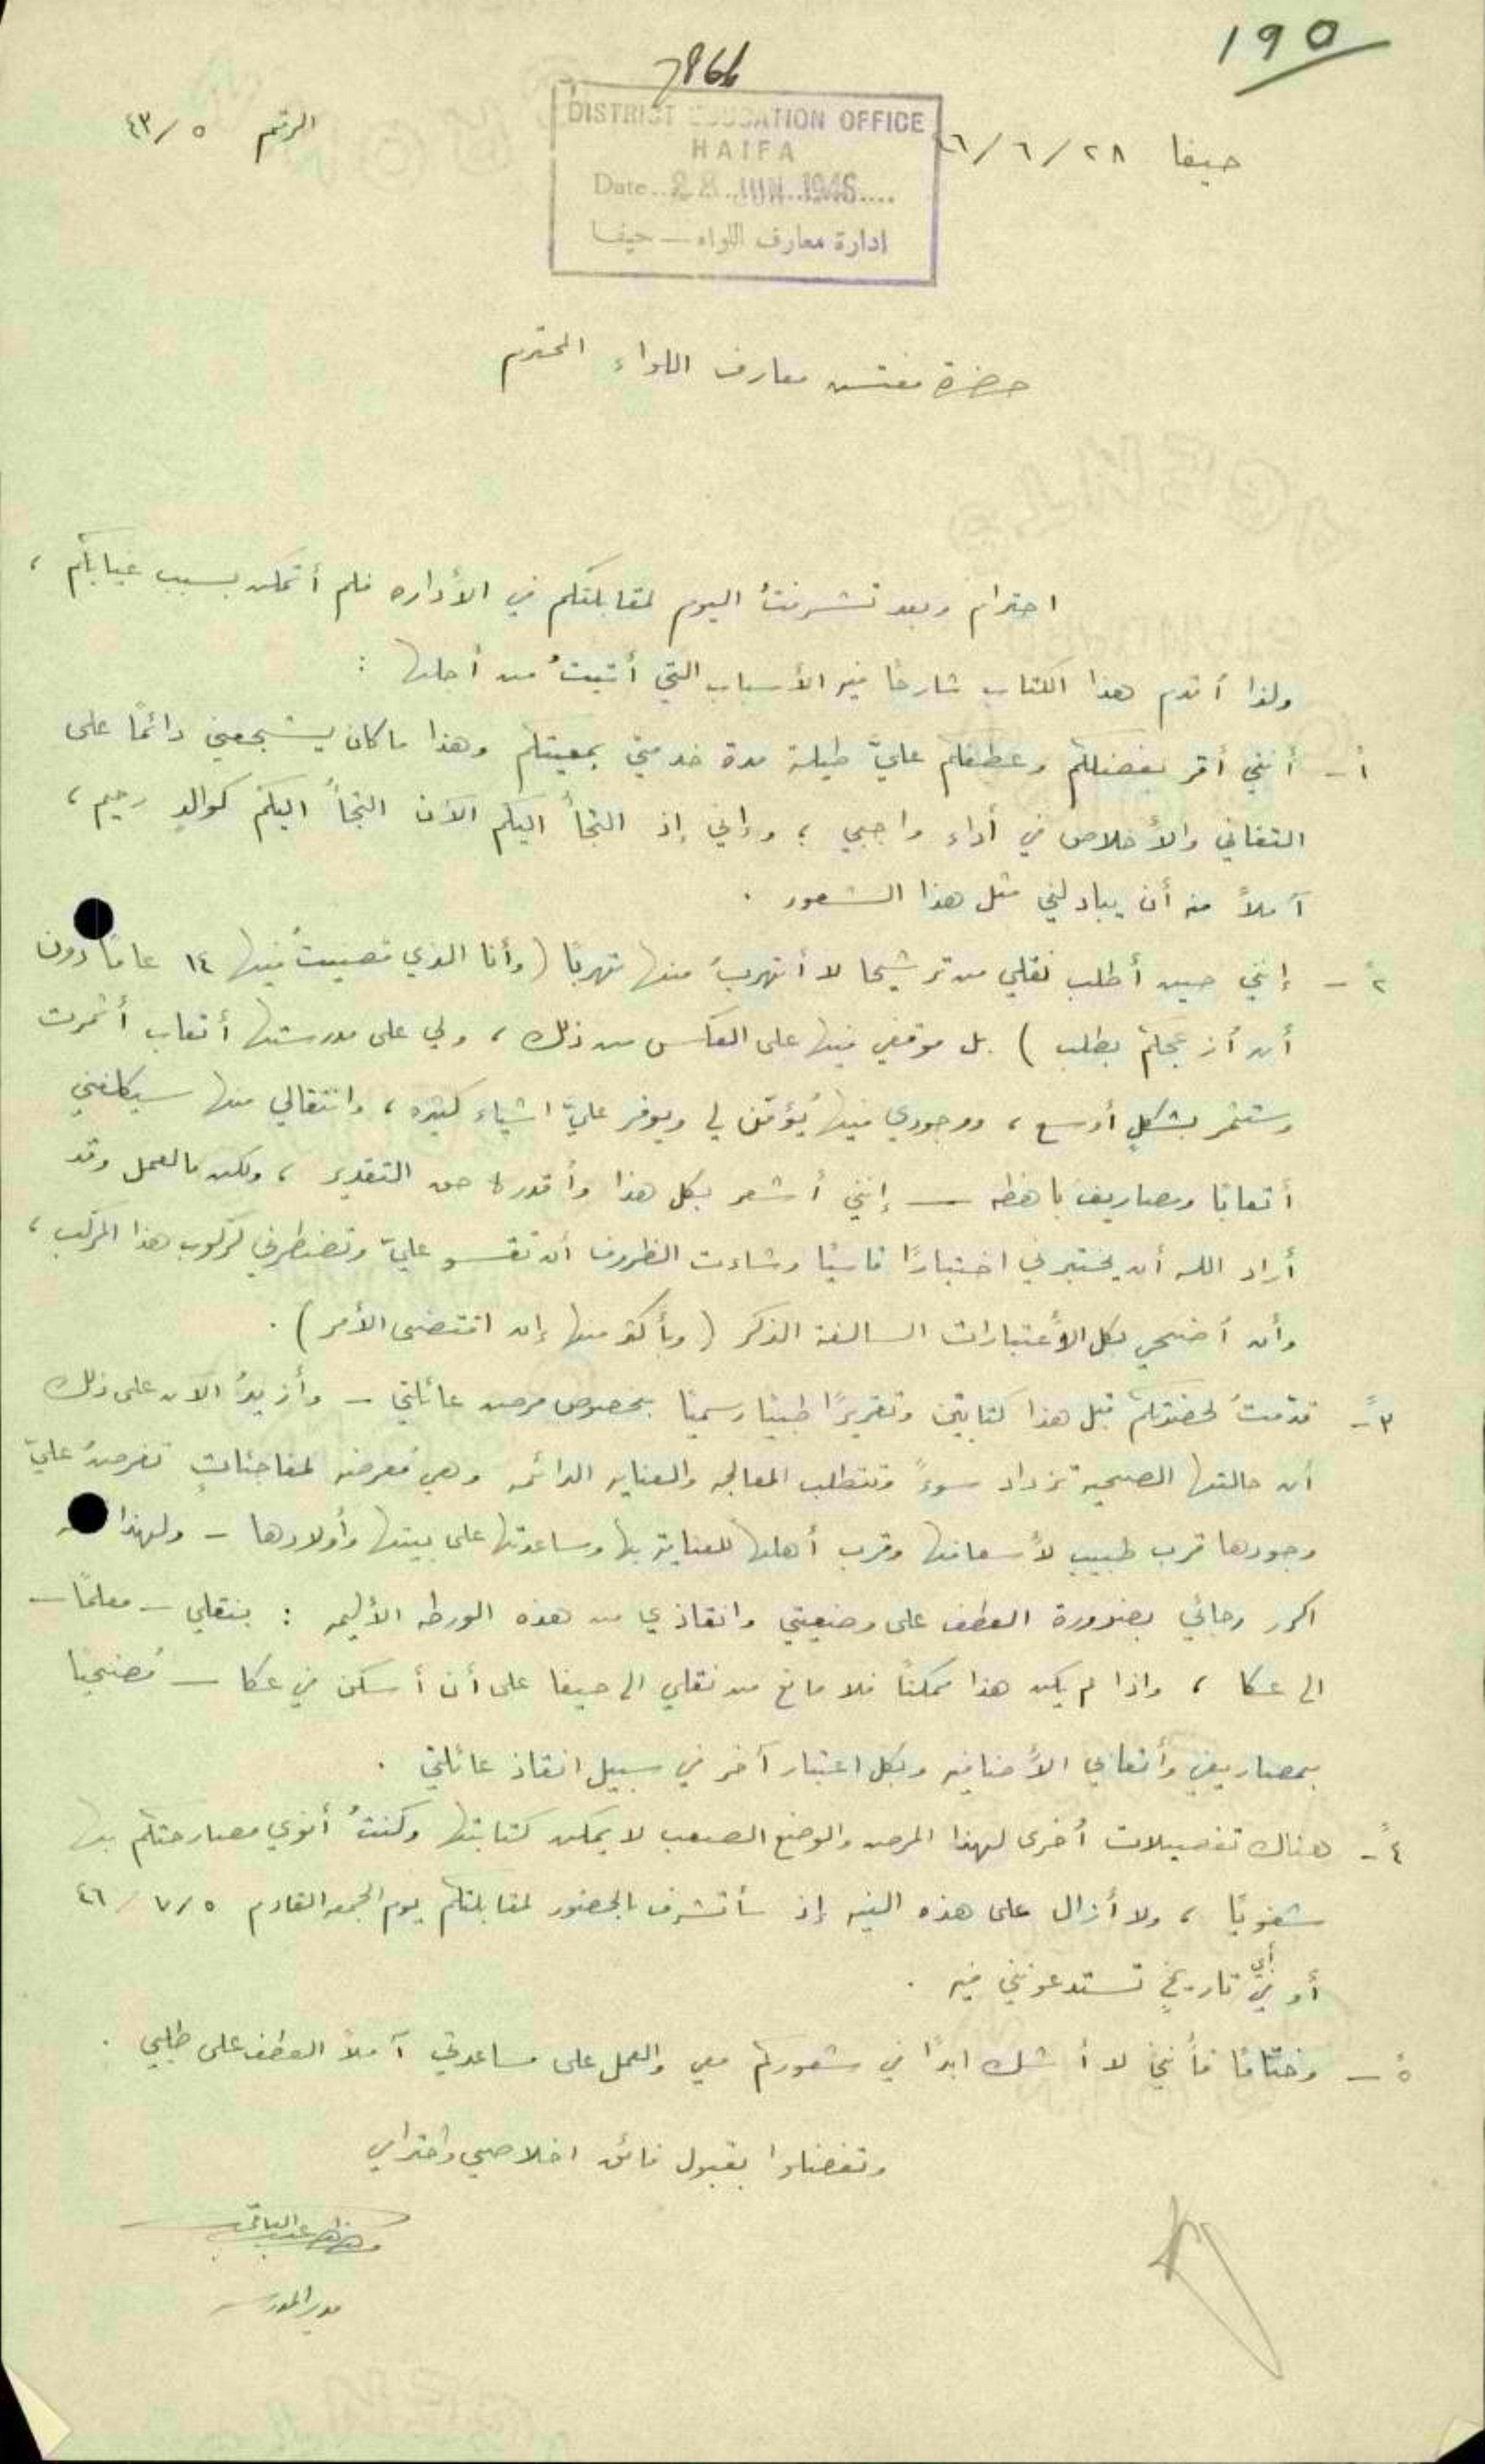 ١٩٥
7966
DISTRICT EDUCATION OFFICE
HAIFA
Date..28 JUN 1946....
ادارة معارف اللواء — حيفا
حيفا ٢٨/٦/٤٦
الرقم ٤٣/٥
حضرة مفتش معارف اللواء المحترم
احترام وبعد تشرفتُ اليوم لمقابلتكم في الأداره فلم أتمكن بسبب غيابكم ،
ولذا أقدم هذا الكتاب شارحًا فيه الأسباب التي أتيتُ من أجلها :
أ - أنني أقر بفضلكم وعطفكم عليّ طيلة مدة خدمتي بمعيتكم وهذا ما كان يشجعني دائمًا على
التفاني والأخلاص في أداء واجبي ؛ وإني إذ التجأ اليكم الآن التجأ اليكم كوالدٍ رحيم ،
آملاً منه أن يبادلني مثل هذا الشعور .
٢ً - إنني حين أطلب نقلي من ترشيحا لا أتهربُ منها تهربًا (وأنا الذي قضيتُ فيها ١٤ عامًا دون
أن أزعجكم بطلب ) بل موقفي فيها على العكس من ذلك ، ولي على مدرستها أتعاب أثمرت
وستثمر بشكلٍ أوسع ، ووجودي فيها يُؤمّن لي ويوفر عليّ اشياء كثيره ، وانتقالي منها سيكلفني
أتعابًا ومصاريف باهظه — إنني أشعر بكل هذا وأقدره حق التقدير ، ولكن ما العمل وقد
أراد الله أن يختبرني اختبارًا قاسيًا وشاءت الظروف أن تقسو عليّ وتضطرني لركوب هذا المركب ،
وأن أضحي بكل الأعتبارات السالفة الذكر (وبأكثر منها إن اقتضى الأمر ) .
٣ً - قدّمتُ لحضرتكم قبل هذا كتابين وتقريرًا طبيًا رسميًا بخصوص مرض عائلتي - وأزيدُ الآن على ذلك
أن حالتها الصحيه تزداد سوءً وتتطلب المعالجه والعنايه الدائمه وهي مُعرضه لمفاجئاتٍ تفرضُ عليّ
وجودها قرب طبيب لأسعافها وقرب أهلها للعناية بها ومساعدتها على بيتها وأولادها - ولهذا
اكرر رجائي بضرورة العطف على وضعيتي وانقاذي من هذه الورطه الأليمه : بنقلي - معلمًا -
الى عكا ، واذا لم يكن هذا ممكنًا فلا مانع من نقلي الى حيفا على أن أسكن في عكا — مُضحيًا
بمصاريفي وأتعابي الأضافيه وبكل اعتبار آخر في سبيل انقاذ عائلتي .
٤ً - هناك تفصيلات أخرى لهذا المرض والوضع الصعب لا يمكن كتابتها وكنتُ أنوي مصارحتكم بها
شفويًا ، ولا أزال على هذه النيه إذ سأتشرف بالحضور لمقابلتكم يوم الجمعه القادم ٤٦/٧/٥
أو في أي تاريخٍ تستدعونني فيه .
٥ً - وختامًا فأنني لا أشك ابدًا في شعوركم معي والعمل على مساعدتي آملاً العطف على طلبي .
وتفضلوا بقبول فائق اخلاصي واحترامي
عبد الباقي
مدير المدرسه